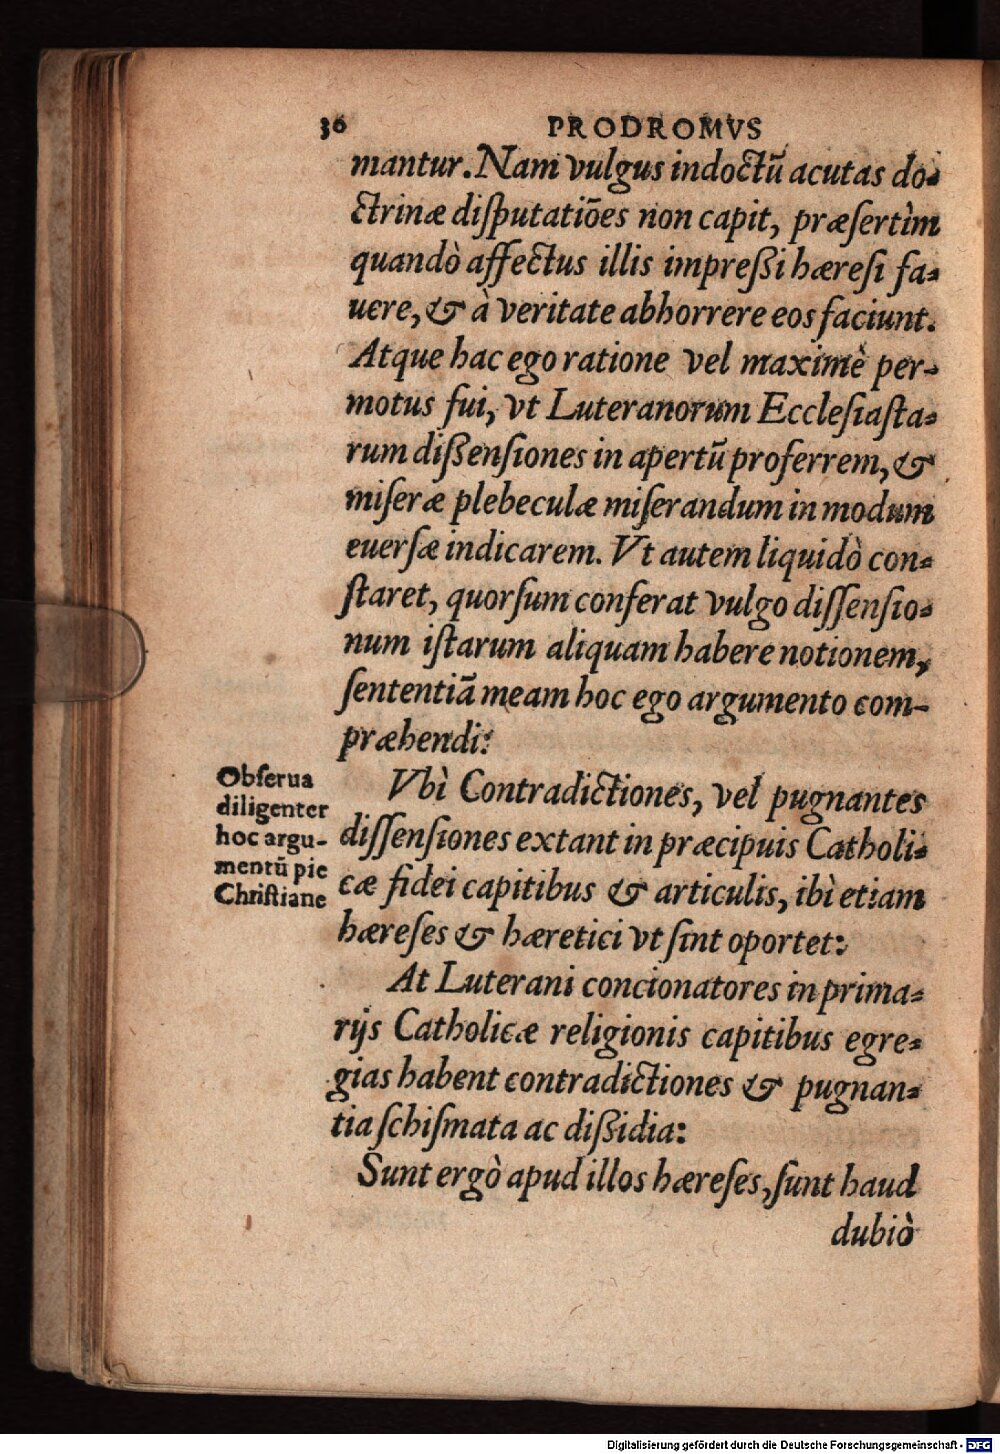 36 PRODROMVS
mantur. Nam vulgus indoctū acutas do-
ctrinæ diſputatiōes non capit, præſertìm
quandò affectus illis impreßi hæreſi fa-
uere, & à veritate abhorrere eos faciunt.
Atque hac ego ratione vel maximè per-
motus fui, vt Luteranorum Eccleſiaſta-
rum dißenſiones in apertū proferrem, &
miſeræ plebeculæ miſerandum in modum
euerſæ indicarem. Vt autem liquidò con-
ſtaret, quorſum conferat vulgo diſſenſio-
num iſtarum aliquam habere notionem,
ſententiā meam hoc ego argumento com-
præhendi:
Vbì Contradictiones, vel pugnantes
diſſenſiones extant in præcipuis Catholi-
cæ fidei capitibus & articulis, ibì etiam
hæreſes & hæretici vt ſint oportet:
Obſerua
diligenter
hoc argu-
mentū pie
Chriſtiane
At Luterani concionatores in prima-
rijs Catholicæ religionis capitibus egre-
gias habent contradictiones & pugnan-
tia ſchiſmata ac dißidia:
Sunt ergò apud illos hæreſes, ſunt haud
dubiò
Digitalisierung gefördert durch die Deutsche Forschungsgemeinschaft - DFG